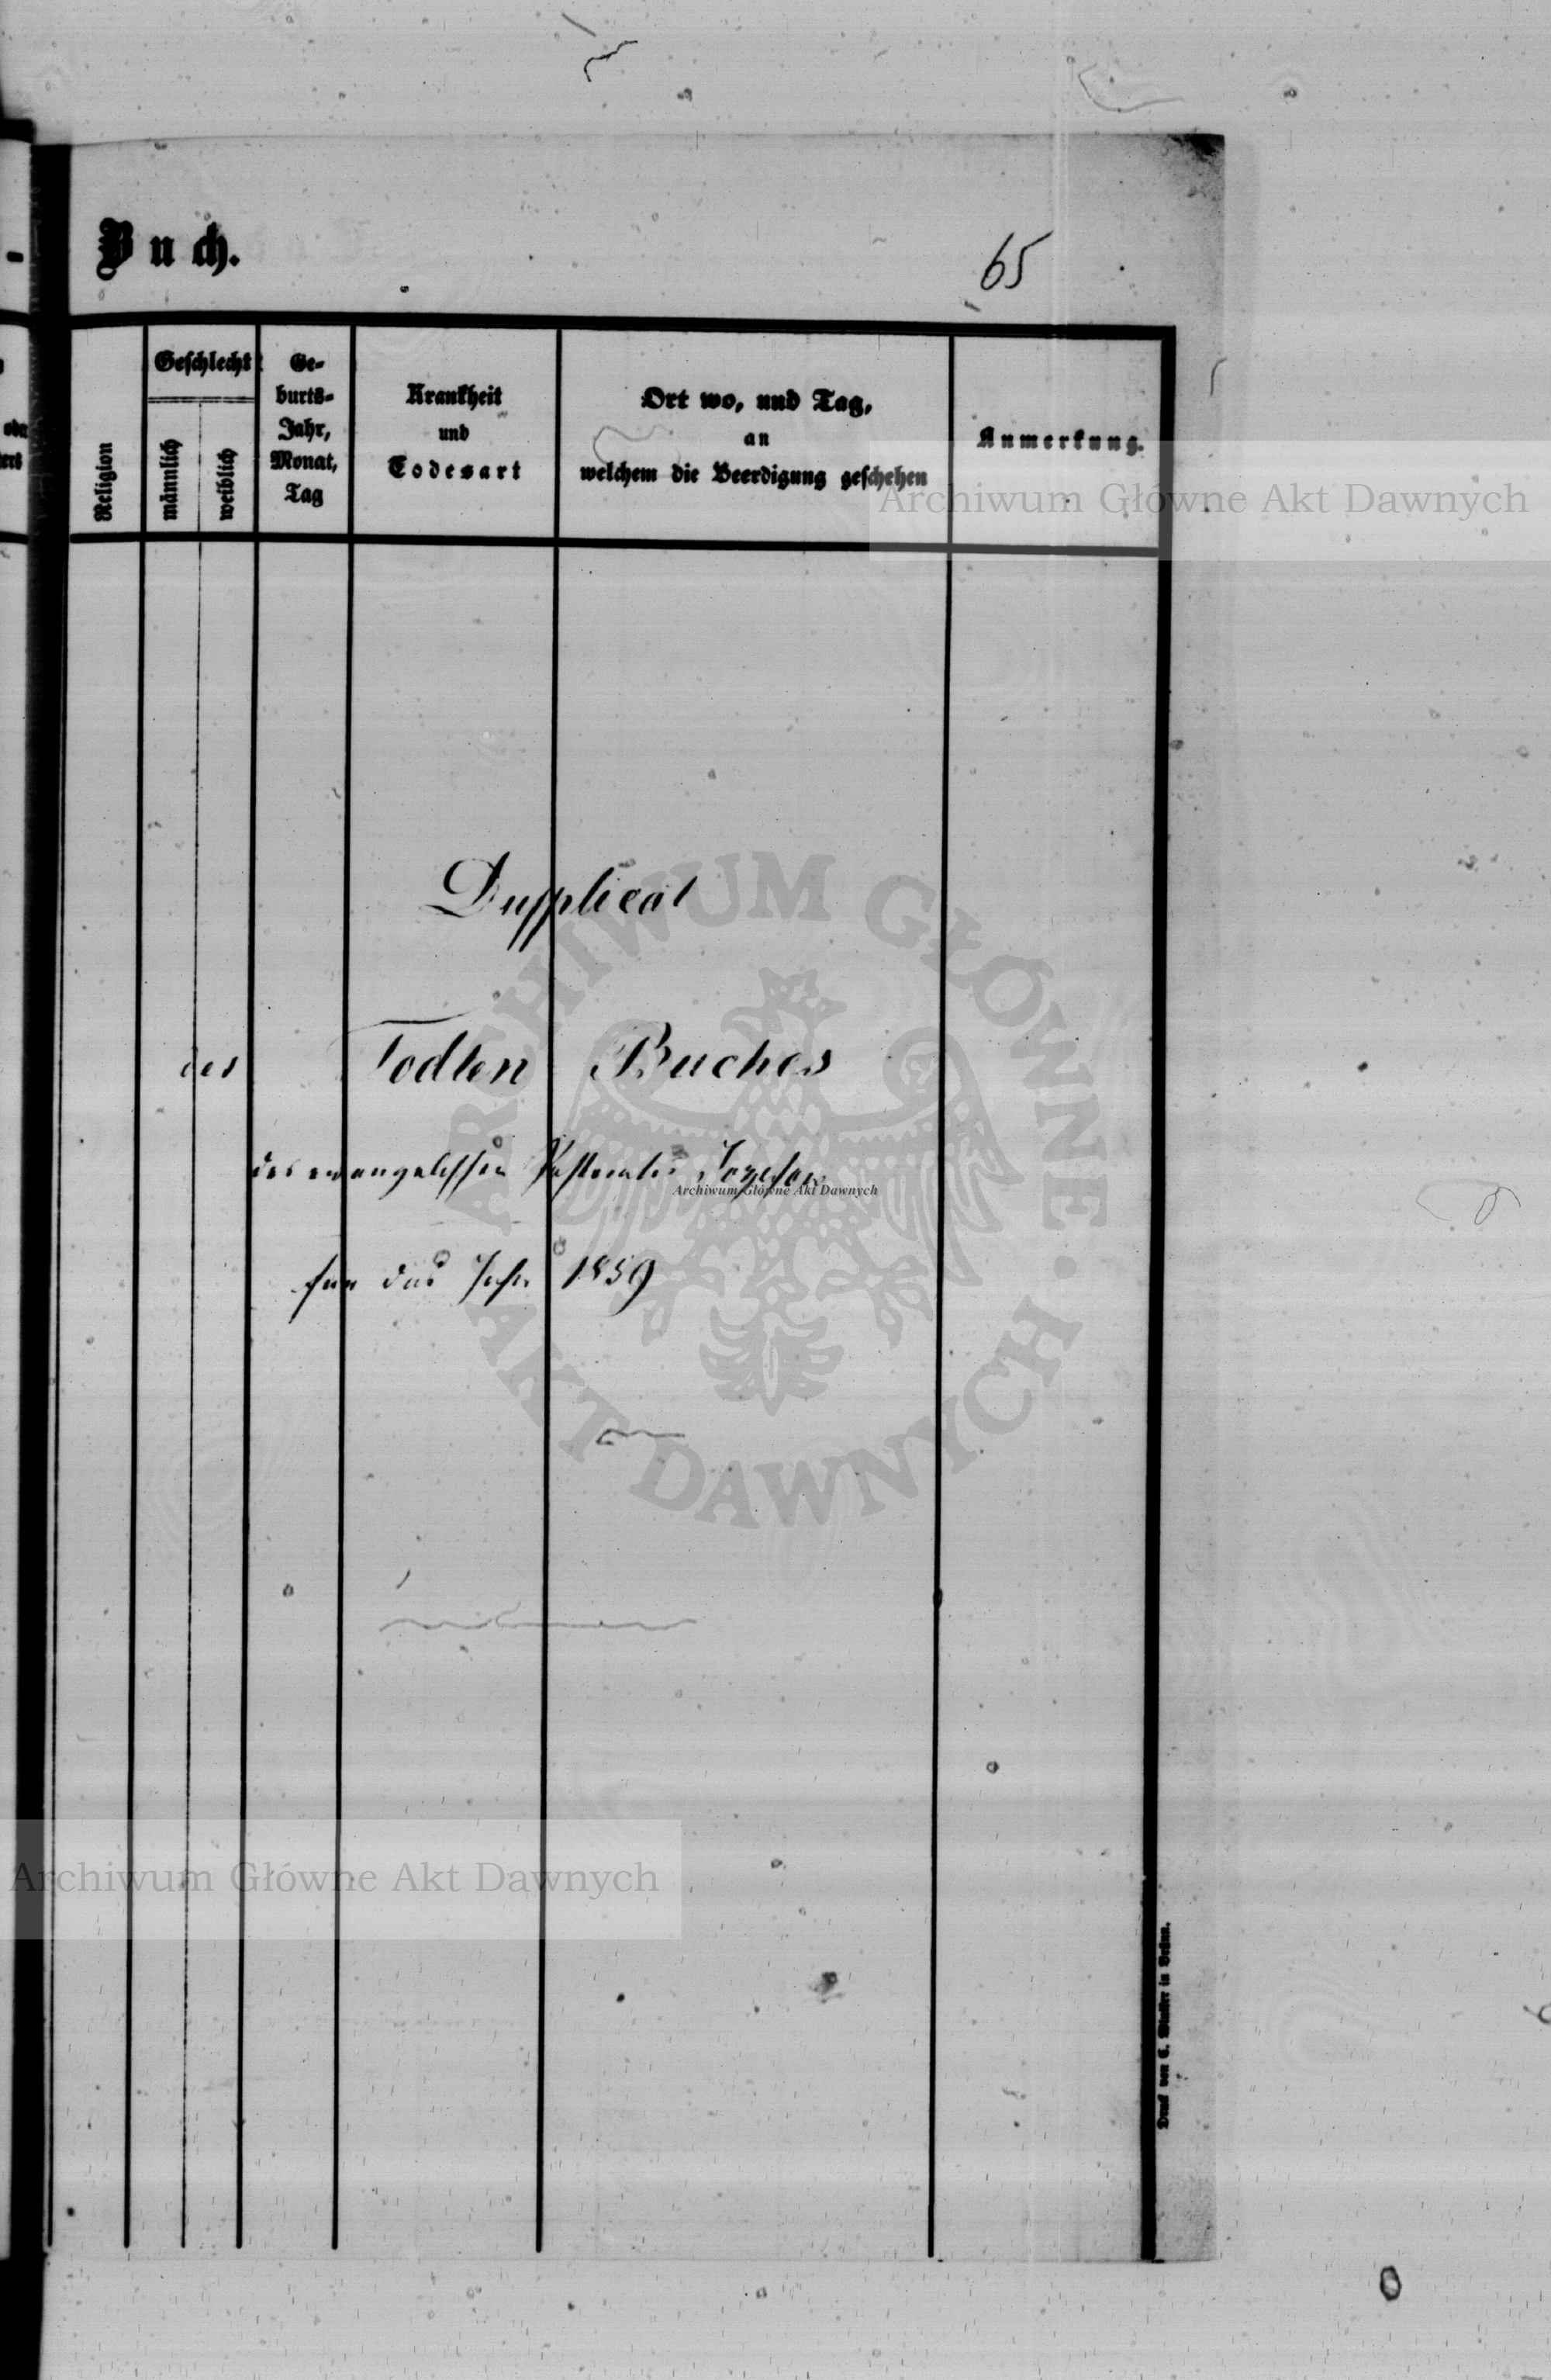 Buch.
65
Religion
Geschlecht
männlich
weiblich
Ge-
burts-
Jahr,
Monat,
Tag
Krankheit
und
Todesart
Ort wo, und Tag,
an
welchem die Beerdigung geschehen
Anmerkung.
Archiwum Główne Akt Dawnych
Dupplicat
des Todten Buches
des evangelischen Pastorates Josefow
für das Jahr 1859
ARCHIWUM GŁÓWNE • AKT DAWNYCH
Archiwum Główne Akt Dawnych
Archiwum Główne Akt Dawnych
Druck von C. Winiker in Brünn.